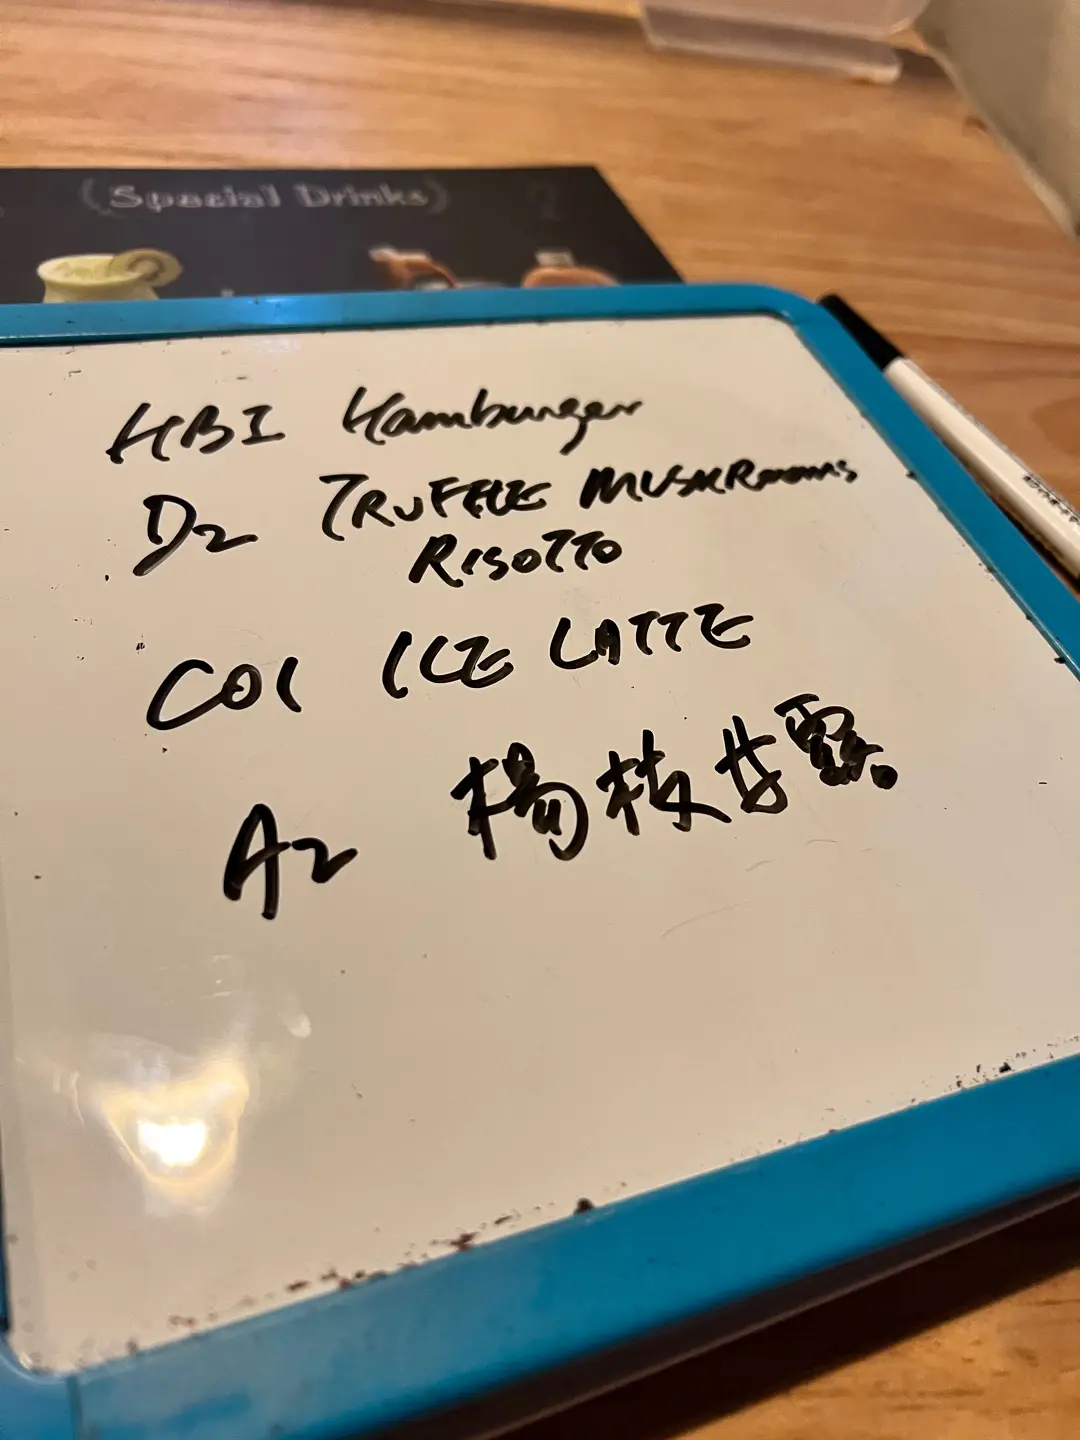 (Special Drinks)
HB1 Hamburger
D2 TRUFFLE MUSHROOMS
RISOTTO
C01 ICE LATTE
A2 楊枝甘露